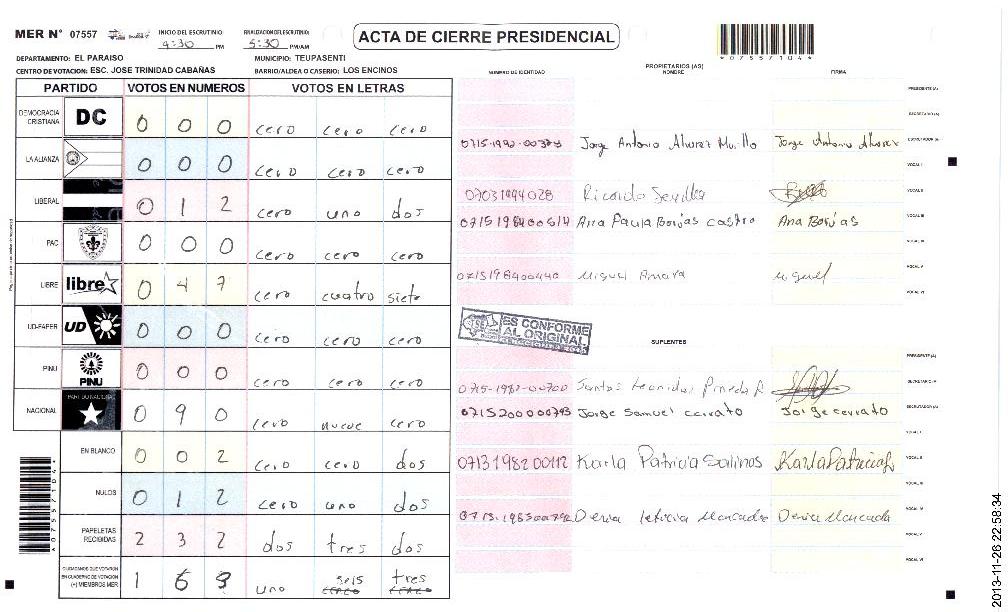 MER N° 07557
INICIO DEL ESCRUTINIO:
4:30 PM
FINALIZACION DEL ESCRUTINIO:
5:30 PM/AM
ACTA DE CIERRE PRESIDENCIAL
*07557104*
DEPARTAMENTO: EL PARAISO
MUNICIPIO: TEUPASENTI
CENTRO DE VOTACION: ESC. JOSE TRINIDAD CABAÑAS
BARRIO/ALDEA O CASERIO: LOS ENCINOS
PARTIDO VOTOS EN NUMEROS VOTOS EN LETRAS
DEMOCRACIA CRISTIANA DC 0 0 0 cero cero cero
LA ALIANZA 0 0 0 cero cero cero
LIBERAL 0 1 2 cero uno dos
PAC 0 0 0 cero cero cero
LIBRE libre 0 4 7 cero cuatro siete
UD-FAPER UD 0 0 0 cero cero cero
PINU PINU 0 0 0 cero cero cero
NACIONAL PARTIDO NACIONAL 0 9 0 cero nueve cero
EN BLANCO 0 0 2 cero cero dos
NULOS 0 1 2 cero uno dos
PAPELETAS RECIBIDAS 2 3 2 dos tres dos
CIUDADANOS QUE VOTARON EN CUADERNO DE VOTACION (+) MIEMBROS MER 1 6 3 uno seis tres
*07557104*
PROPIETARIOS (AS)
NUMERO DE IDENTIDAD NOMBRE FIRMA
PRESIDENTE (A)
SECRETARIO (A)
0715-1992-00378 Jorge Antonio Alvarez Murillo Jorge Antonio Alvarez ESCRUTADOR (A)
VOCAL I
07031994028 Ricardo Sevilla VOCAL II
0715198400514 Ana Paula Borjas castro Ana Borjas VOCAL III
VOCAL IV
0715198400440 Miguel Amaya Miguel VOCAL V
VOCAL VI
TSE ES CONFORME AL ORIGINAL
SUPLENTES
PRESIDENTE (A)
0715-1982-00700 Santos Leonidas Pineda R SECRETARIO (A)
0715200000793 Jorge Samuel cerrato Jorge cerrato ESCRUTADOR (A)
VOCAL I
0713198200112 Karla Patricia Salinas Karla Patricia S VOCAL II
VOCAL III
Denia leticia Moncada Denia Moncada VOCAL IV
VOCAL V
VOCAL VI
2013-11-26 22:58:34